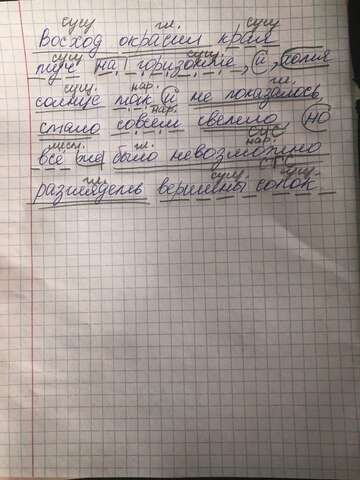 сущ гл. сущ
Восход окрасил края
сущ сущ.
туч на горизонте, и, хотя
сущ. нар. гл.
солнце так и не показалось,
гл. нар.
стало совсем светло, но
мест. гл. нар. СИС
всё же было невозможно
гл. сущ. сущ.
разглядеть вершины сопок.